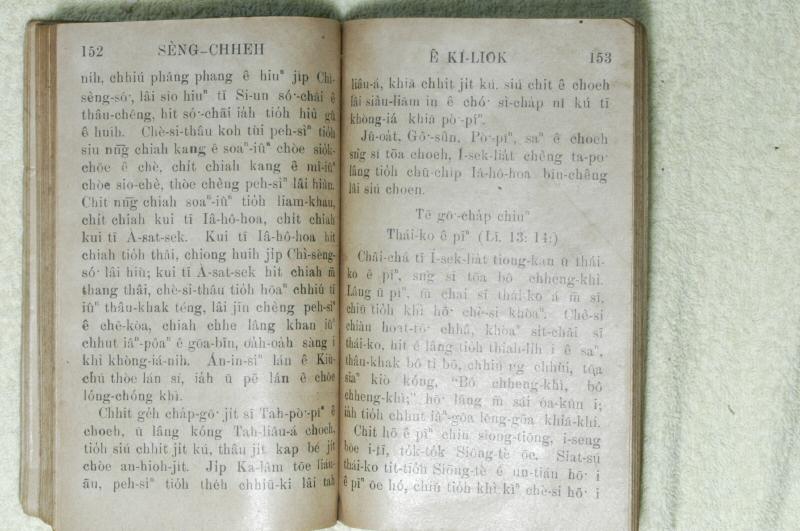 152 SÈNG-CHHEH
nih, chhiú phâng phang ê hiuⁿ ji̍p Chì-
sèng-só͘, lâi sio hiuⁿ tī Si-un só͘-chāi ê
thâu-chêng, hit só͘-chāi iáh tio̍h hiù gû
ê huih. Chè-si-thâu koh tùi peh-sìⁿ tio̍h
siu nn̄g chiah kang ê soaⁿ-iûⁿ chòe sio̍k-
chōe ê chè, chít chiah kang ê mî-iûⁿ
chòe sio-chè, thòe chèng peh-sìⁿ lâi hiàn.
Chit nn̄g chiah soaⁿ-iûⁿ tio̍h liam-khau,
chit chiah kui tī Iâ-hô-hoa, chit chiah
kui tī A-sat-sek. Kui tī Iâ-hô-hoa hit
chiah tio̍h thâi, chiong huih ji̍p Chì-sèng-
só͘ lâi hiù; kui tī A-sat-sek hit chiah m̄
thang thâi, chè-si-thâu tio̍h hōaⁿ chhiú tī
iûⁿ thâu-khak téng, lâi jīn chèng peh-sìⁿ
ê chè-kòa, chiah chhe lâng khan iûⁿ
chhut iâⁿ-pôaⁿ ê gōa-bīn, oa̍h-oa̍h sàng i
khì khòng-iá-nih. An-ni-siⁿ lán ê Kiù-
chú thòe lán sí, iáh ū pē lán ê chōe
lóng-chóng khì.
Chhit ge̍h cha̍p-gō͘ ji̍t sī Tah-pò͘-pîⁿ ê
choeh, ū lâng kóng Tah-liâu-á choeh,
tio̍h siú chhit ji̍t kú, thâu ji̍t kap bé ji̍t
chòe an-hioh-ji̍t. Ji̍p Ka-lâm tōe liáu-
āu, peh-sìⁿ tio̍h the̍h chhiū-ki lâi tah
Ê KÍ-LIO̍K 153
liâu-á, khiā chhit ji̍t kú. siú chit ê choeh
lâi siàu-liām in ê chó͘ sì-cha̍p nî kú tī
khòng-iá khiā pò͘-pîⁿ.
Jû-oa̍t, Gō͘-sûn, Pò͘-pîⁿ, saⁿ ê choeh
sǹg sī tōa choeh, I-sek-lia̍t chèng ta-po͘
lâng tio̍h chū-chi̍p Iâ-hô-hoa bīn-chêng
lâi siú choeh.
Tē gō͘-cha̍p chiuⁿ
Thái-ko ê pīⁿ (Lī. 13: 14:)
Chāi-chá tī I-sek-lia̍t tiong-kan ū thái-
ko ê pīⁿ, sǹg sī tōa bô chheng-khì.
Lâng ū pīⁿ, m̄ chai sī thái-ko á m̄ sī,
chiū tio̍h khì hō͘ chè-si khòaⁿ. Chè-si
chiàu hoat-tō͘ chhâ, khòaⁿ si̍t-chāi sī
thái-ko, hit ê lâng tio̍h thiah-li̍h i ê saⁿ,
thâu-khak bô tì bō, chhiú ng chhùi, tōa
siaⁿ kiò kóng, "Bô chheng-khì, bô
chheng-khì;" hō͘ lâng m̄ sái óa-kūn i;
iáh tio̍h chhut iâⁿ-gōa lêng-gōa khiā-khí.
Chit hō ê pīⁿ chin siong-tiōng, i-seng
bōe i-tī, to̍k-to̍k Siōng-tè ōe. Siat-sú
thái-ko tit-tio̍h Siōng-tè ê un-tián hō͘ i
ê pīⁿ ōe hó, chiū tio̍h khì kìⁿ chè-si hō͘ i